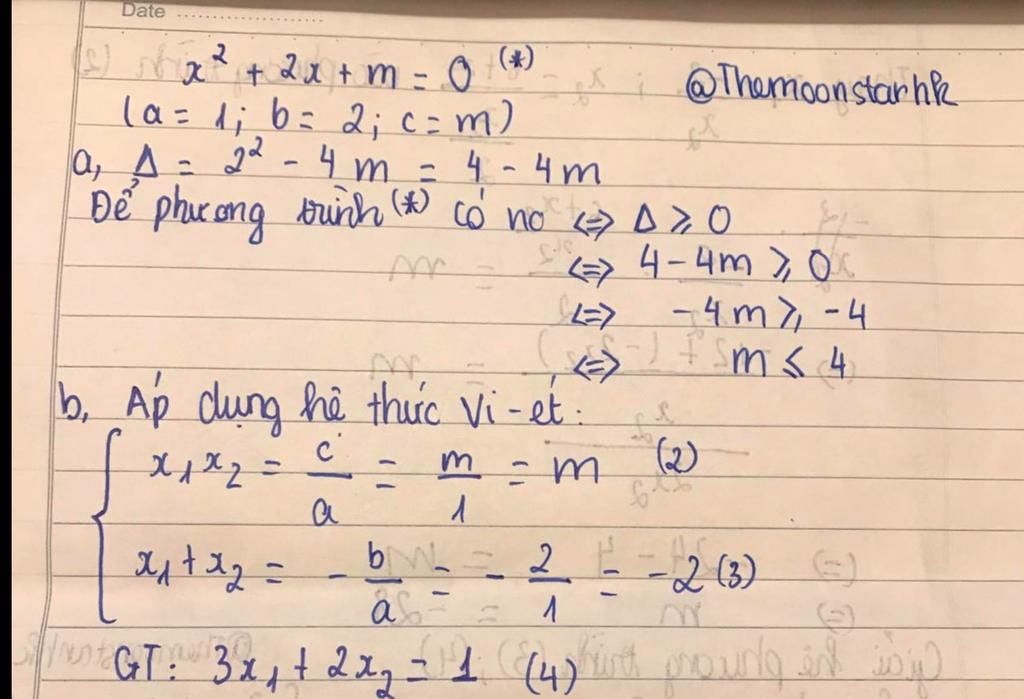 Date
x² + 2x + m = 0 (*)
@Themoonstarhk
(a = 1; b = 2; c = m)
a, Δ = 2² - 4m = 4 - 4m
Để phương trình (*) có no <=> Δ ⩾ 0
<=> 4 - 4m ⩾ 0
<=> -4m ⩾ -4
<=> m ⩽ 4
b, Áp dụng hệ thức Vi-ét:
x₁x₂ = c/a = m/1 = m (2)
x₁ + x₂ = -b/a = -2/1 = -2 (3)
GT: 3x₁ + 2x₂ = 1 (4)